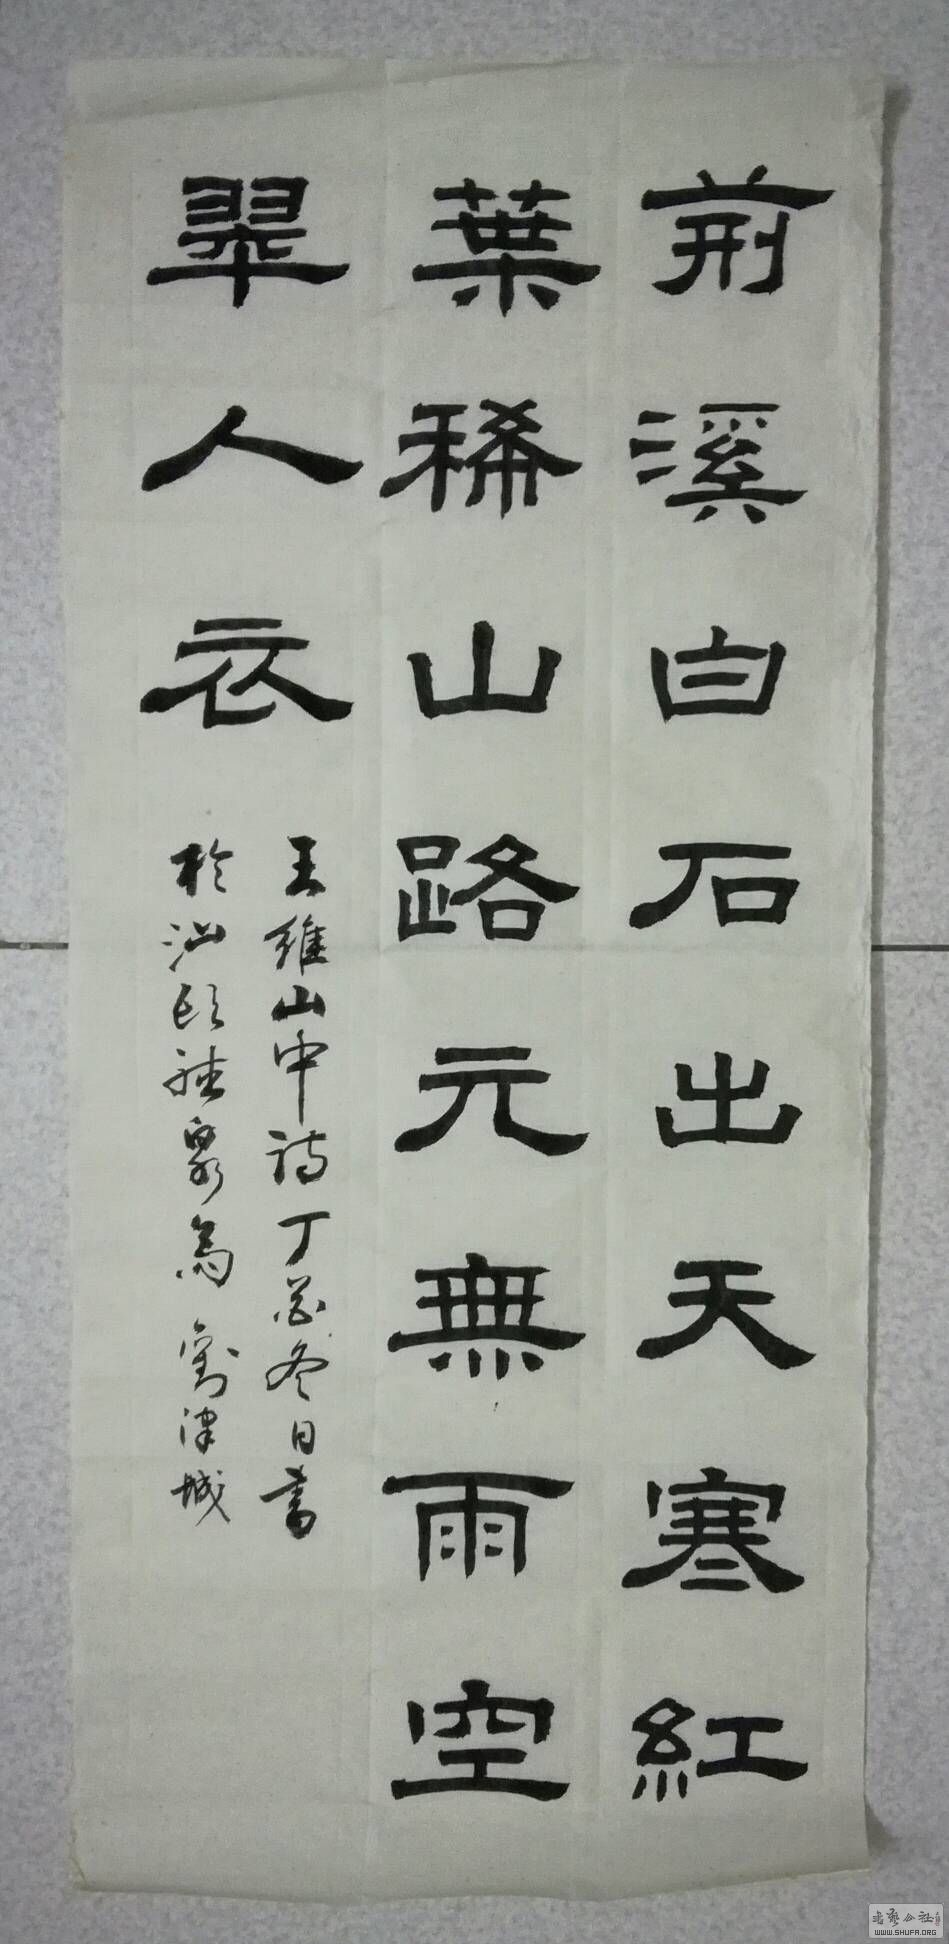 荊溪白石出天寒紅
葉稀山路元無雨空
翠人衣
王維山中詩丁酉冬日書
於汕頭泉寓劉津城
书艺公社
WWW.SHUFA.ORG